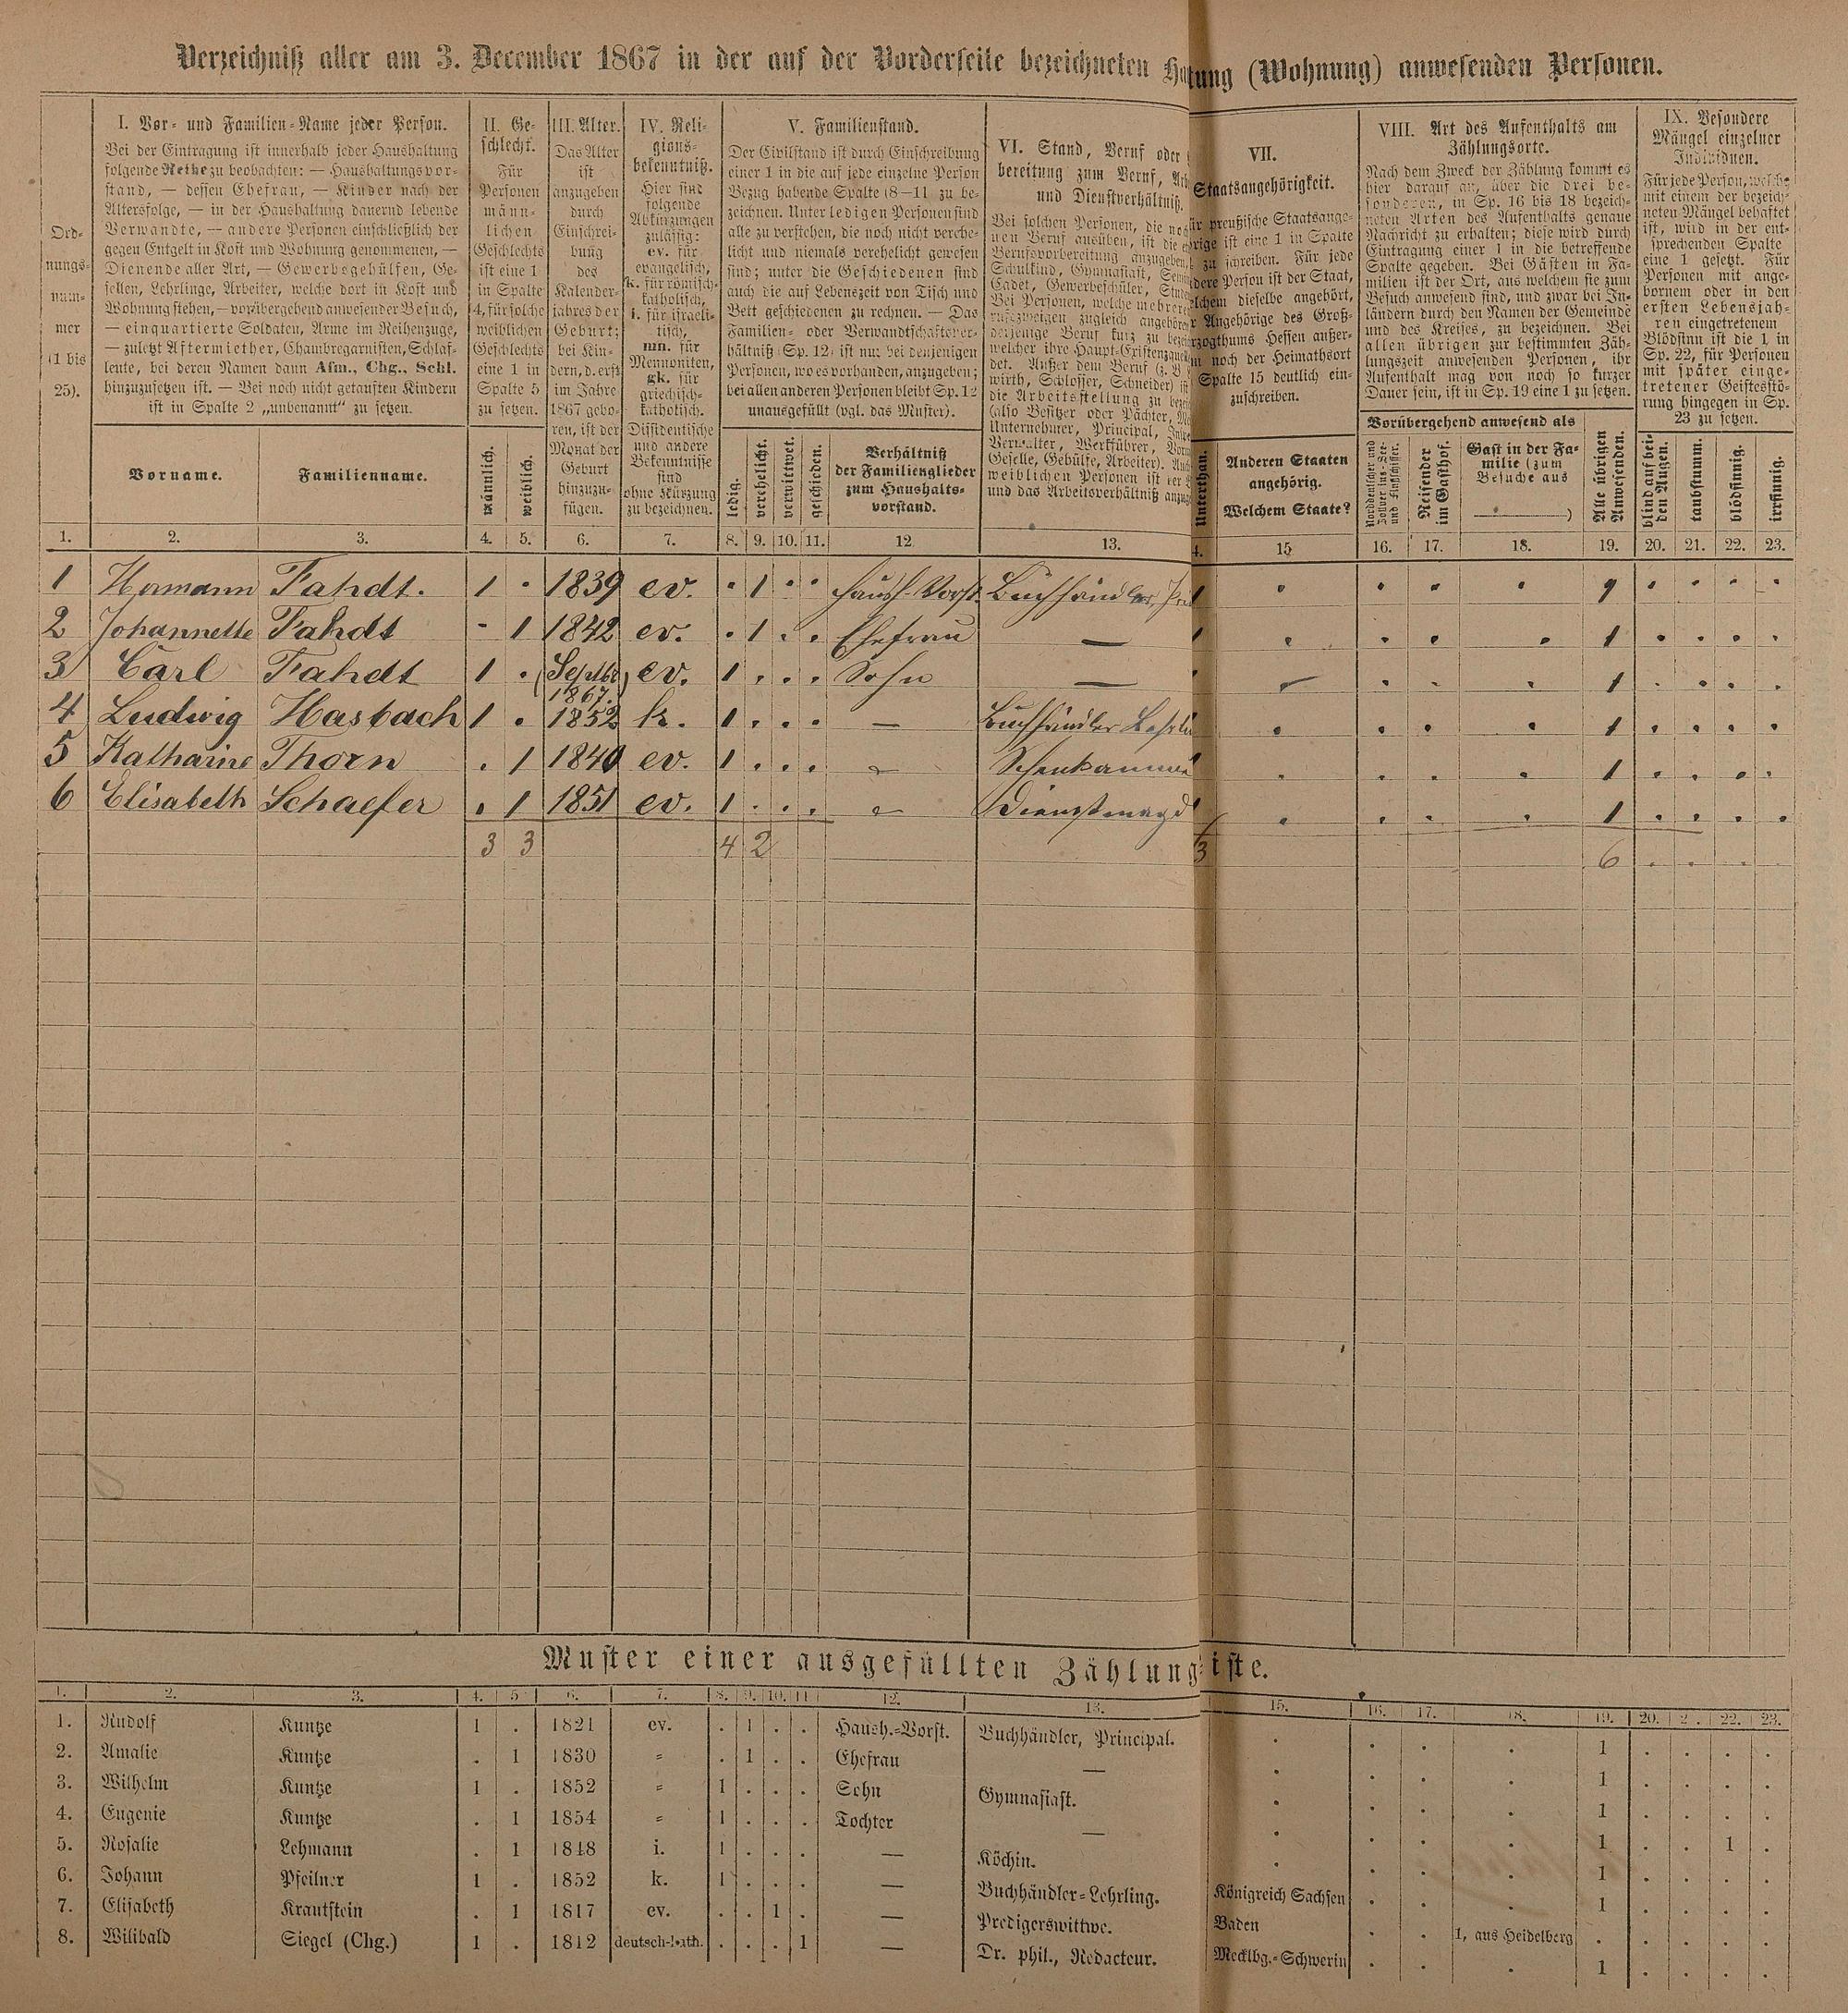 Verzeichniß aller am 3. December 1867 in der auf der Vorderseite bezeichneten tung (Wohnung) anwesenden Personen.
Ord-
nungs-
num-
mer
(1 bis
25).
I. Vor- und Familien-Name jeder Person.
Bei der Eintragung ist innerhalb jeder Haushaltung
folgende Reihe zu beobachten: — Haushaltungsvor-
stand, — dessen Ehefrau, — Kinder nach der
Altersfolge, — in der Haushaltung dauernd lebende
Verwandte, — andere Personen einschließlich der
gegen Entgelt in Kost und Wohnung genommenen, —
Dienende aller Art, — Gewerbsgehülfen, Ge-
sellen, Lehrlinge, Arbeiter, welche dort in Kost und
Wohnung stehen, — vorübergehend anwesender Besuch,
— einquartierte Soldaten, Arme im Reihenzuge,
— zuletzt Aftermiether, Chambregarnisten, Schlaf-
leute, bei deren Namen dann Afm., Chg., Schl.
hinzuzusetzen ist. — Bei noch nicht getauften Kindern
ist in Spalte 2 „unbenannt“ zu setzen.
Vorname.
Familienname.
II. Ge-
schlecht.
Für
Personen
männ-
lichen
Geschlechts
ist eine 1
in Spalte
4, für solche
weiblichen
Geschlechts
eine 1 in
Spalte 5
zu setzen.
männlich.
weiblich.
III. Alter.
Das Alter
ist
anzugeben
durch
Einschrei-
bung
des
Kalender-
jahres der
Geburt;
bei Kin-
dern, d. erst
im Jahre
1867 gebo-
ren, ist der
Monat der
Geburt
hinzuzu-
fügen.
IV. Reli-
gions-
bekenntniß.
Hier sind
folgende
Abkürzungen
zulässig:
ev. für
evangelisch,
k. für römisch-
katholisch,
i. für israeli-
tisch,
mn. für
Mennoniten,
gk. für
griechisch-
katholisch.
Dissidentische
und andere
Bekenntnisse
sind
ohne Kürzung
zu bezeichnen.
V. Familienstand.
Der Civilstand ist durch Einschreibung
einer 1 in die auf jede einzelne Person
Bezug habende Spalte (8—11) zu be-
zeichnen. Unter ledigen Personen sind
alle zu verstehen, die noch nicht verehe-
licht und niemals verehelicht gewesen
sind; unter die Geschiedenen sind
auch die auf Lebenszeit von Tisch und
Bett geschiedenen zu rechnen. — Das
Familien- oder Verwandtschaftsver-
hältniß (Sp. 12) ist nur bei denjenigen
Personen, wo es vorhanden, anzugeben;
bei allen anderen Personen bleibt Sp. 12
unausgefüllt (vgl. das Muster).
ledig.
verehelicht.
verwittwet.
geschieden.
Verhältniß
der Familienglieder
zum Haushalts-
vorstand.
VI. Stand, Beruf oder
bereitung zum Beruf,
und Dienstverhältniß.
Bei solchen Personen, die
nen Beruf ausüben, ist die
Berufsvorbereitung anzugeben,
Schulkind, Gymnasiast,
Cadet, Gewerbeschüler,
Bei Personen, welche mehreren
rufszweigen zugleich angehören
derjenige Beruf kurz zu
welcher ihre Haupt-Existenz
det. Außer dem Beruf
wirth, Schlosser, Schneider) ist
die Arbeitsstellung zu
(also Besitzer oder Pächter,
Unternehmer, Principal,
Verwalter, Werkführer,
Geselle, Gehülfe, Arbeiter).
weiblichen Personen ist
und das Arbeitsverhältniß
VII.
Staatsangehörigkeit.
ür preußische Staatsange-
rige ist eine 1 in Spalte
zu schreiben. Für jede
dere Person ist der Staat,
lchem dieselbe angehört,
r Angehörige des Groß-
rzogthums Hessen außer-
m noch der Heimathsort
Spalte 15 deutlich ein-
zuschreiben.
Unterthan.
Anderen Staaten
angehörig.
Welchem Staate?
VIII. Art des Aufenthalts am
Zählungsorte.
Nach dem Zweck der Zählung kommt es
hier darauf an, über die drei be-
sonderen, in Sp. 16 bis 18 bezeich-
neten Arten des Aufenthalts genaue
Nachricht zu erhalten; diese wird durch
Eintragung einer 1 in die betreffende
Spalte gegeben. Bei Gästen in Fa-
milien ist der Ort, aus welchem sie zum
Besuch anwesend sind, und zwar bei In-
ländern durch den Namen der Gemeinde
und des Kreises, zu bezeichnen. Bei
allen übrigen zur bestimmten Zäh-
lungszeit anwesenden Personen, ihr
Aufenthalt mag von noch so kurzer
Dauer sein, ist in Sp. 19 eine 1 zu setzen.
Vorübergehend anwesend als
Norddeutscher und
Zollver ins-See-
und Flußschiffer.
Reisender
im Gasthof.
Gast in der Fa-
milie (zum
Besuche aus
)
Alle übrigen
Anwesenden.
IX. Besondere
Mängel einzelner
Individuen.
Für jede Person, welche
mit einem der bezeich-
neten Mängel behaftet
ist, wird in der ent-
sprechenden Spalte
eine 1 gesetzt. Für
Personen mit ange-
bornem oder in den
ersten Lebensjah-
ren eingetretenem
Blödsinn ist die 1 in
Sp. 22, für Personen
mit später einge-
tretener Geistesstö-
rung hingegen in Sp.
23 zu setzen.
blind auf bei-
den Augen.
taubstumm.
blödsinnig.
irrsinnig.
1. 2. 3. 4. 5. 6. 7. 8. 9. 10. 11. 12 13. 4. 15 16. 17. 18. 19. 20. 21. 22. 23.
1 Hermann Fahdt. 1 . 1839 ev. . 1 . . Haush.-Vorst. Buchhändler, 1 . . . . 1 . . . .
2 Johannette Fahdt - 1 1842 ev. . 1 . . Ehefrau — 1 . . . . 1 . . . .
3 Carl Fahdt 1 . (Septbr) 1867. ev. 1 . . . Sohn — — . . . 1 . . . .
4 Ludwig Hasbach 1 . 1852 k. 1 . . . — Buchhändler . . . . 1 . . . .
5 Katharine Thorn . 1 1840 ev. 1 . . . — . . . . 1 . . . .
6 Elisabeth Schaefer . 1 1851 ev. 1 . . . — Dienstmagd . . . . 1 . . . .
3 3 4 2 3 6 . . . .
Muster einer ausgefüllten Zählung iste.
1. 2. 3. 4. 5 6. 7. 8. 9. 10. 11 12. 13. 15. 16. 17. 18. 19. 20. 2. 22. 23.
1. Rudolf Kuntze 1 . 1821 ev. . 1 . . Haush.-Vorst. Buchhändler, Principal. . . . . 1 . . . .
2. Amalie Kuntze . 1 1830 = . 1 . . Ehefrau — . . . . 1 . . . .
3. Wilhelm Kuntze 1 . 1852 = 1 . . . Sohn Gymnasiast. . . . . 1 . . . .
4. Eugenie Kuntze . 1 1854 = 1 . . . Tochter — . . . . 1 . . 1 .
5. Rosalie Lehmann . 1 1848 i. 1 . . . — Köchin. . . . . 1 . . . .
6. Johann Pfeilner 1 . 1852 k. 1 . . . — Buchhändler-Lehrling. Königreich Sachsen . . . 1 . . . .
7. Elisabeth Krautstein . 1 1817 ev. . . 1 . — Predigerswittwe. Baden . . 1, aus Heidelberg . . . . .
8. Wilibald Siegel (Chg.) 1 . 1812 deutsch-kath. . . . 1 — Dr. phil., Redacteur. Mecklbg.-Schwerin . . . 1 . . . .